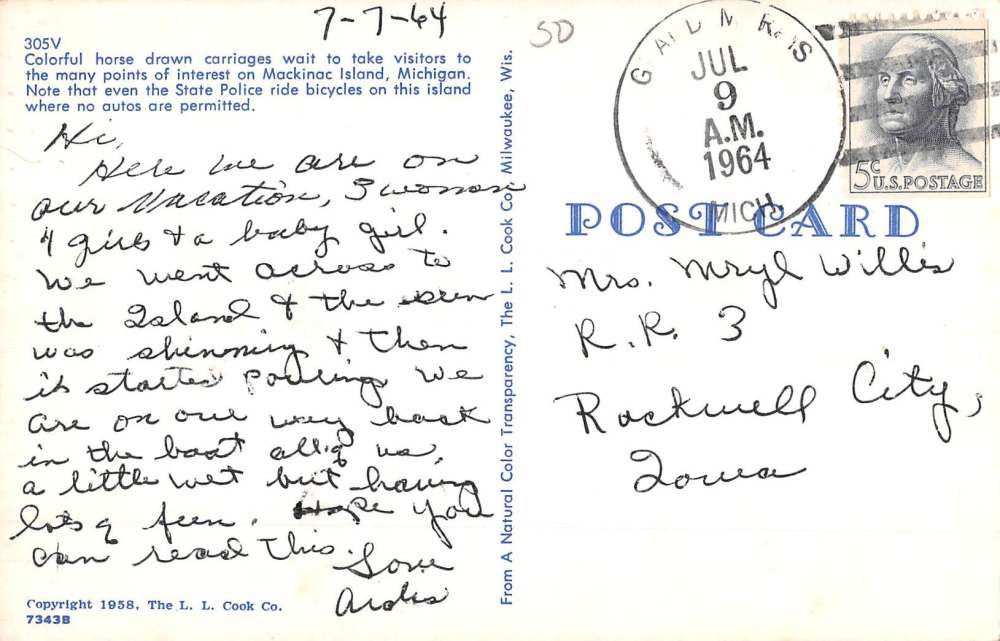 7-7-64
50
305V
Colorful horse drawn carriages wait to take visitors to
the many points of interest on Mackinac Island, Michigan.
Note that even the State Police ride bicycles on this island
where no autos are permitted.
Hi,
Here we are on
our Vacation, 3 woman
4 girls & a baby girl.
We went across to
the Island & the sun
was shinning & then
it started pouring We
are on our way back
in the boat all of us,
a little wet but having
lots of fun. Hope you
can read this.
Love
Ardis
Copyright 1958, The L. L. Cook Co.
7343B
From A Natural Color Transparency, The L. L. Cook Co. Milwaukee, Wis.
JUL
9
A.M.
1964
MICH.
5c U.S. POSTAGE
POST CARD
Mrs. Mryl Willis
R.R. 3
Rockwell City,
Iowa